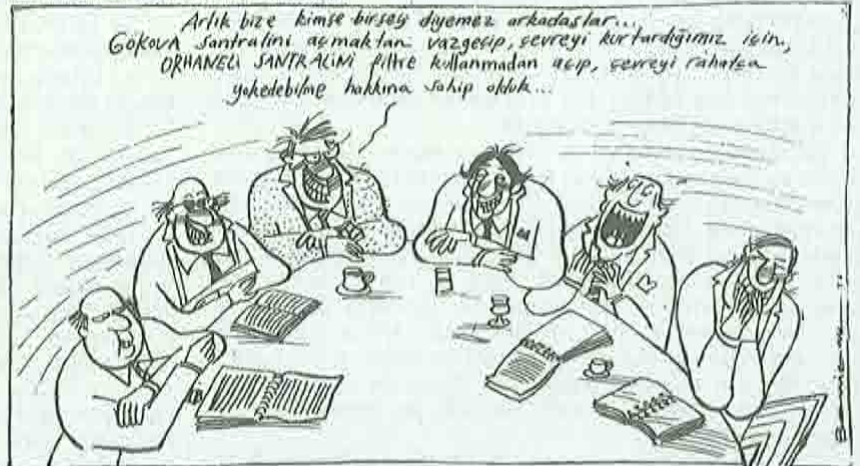 Artık bize kimse birşey diyemez arkadaşlar...
GÖKOVA santralini açmaktan vazgeçip, çevreyi kurtardığımız için,
ORHANELİ SANTRALİNİ filtre kullanmadan açıp, çevreyi rahatça
yokedebilme hakkına sahip olduk...